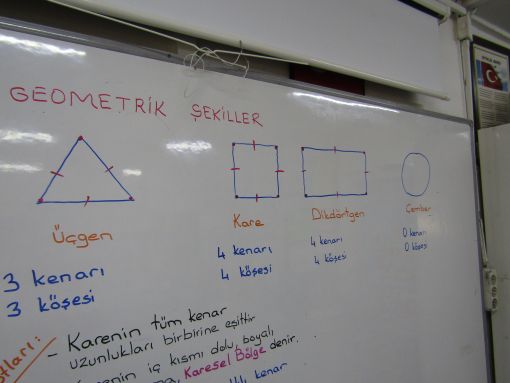 GEOMETRİK ŞEKİLLER
Üçgen
3 kenarı
3 köşesi
Kare
4 kenarı
4 köşesi
Dikdörtgen
4 kenarı
4 köşesi
Çember
0 kenarı
0 köşesi
- Karenin tüm kenar
uzunlukları birbirine eşittir
iç kısmı dolu, boyalı
Karesel Bölge denir.
kenar